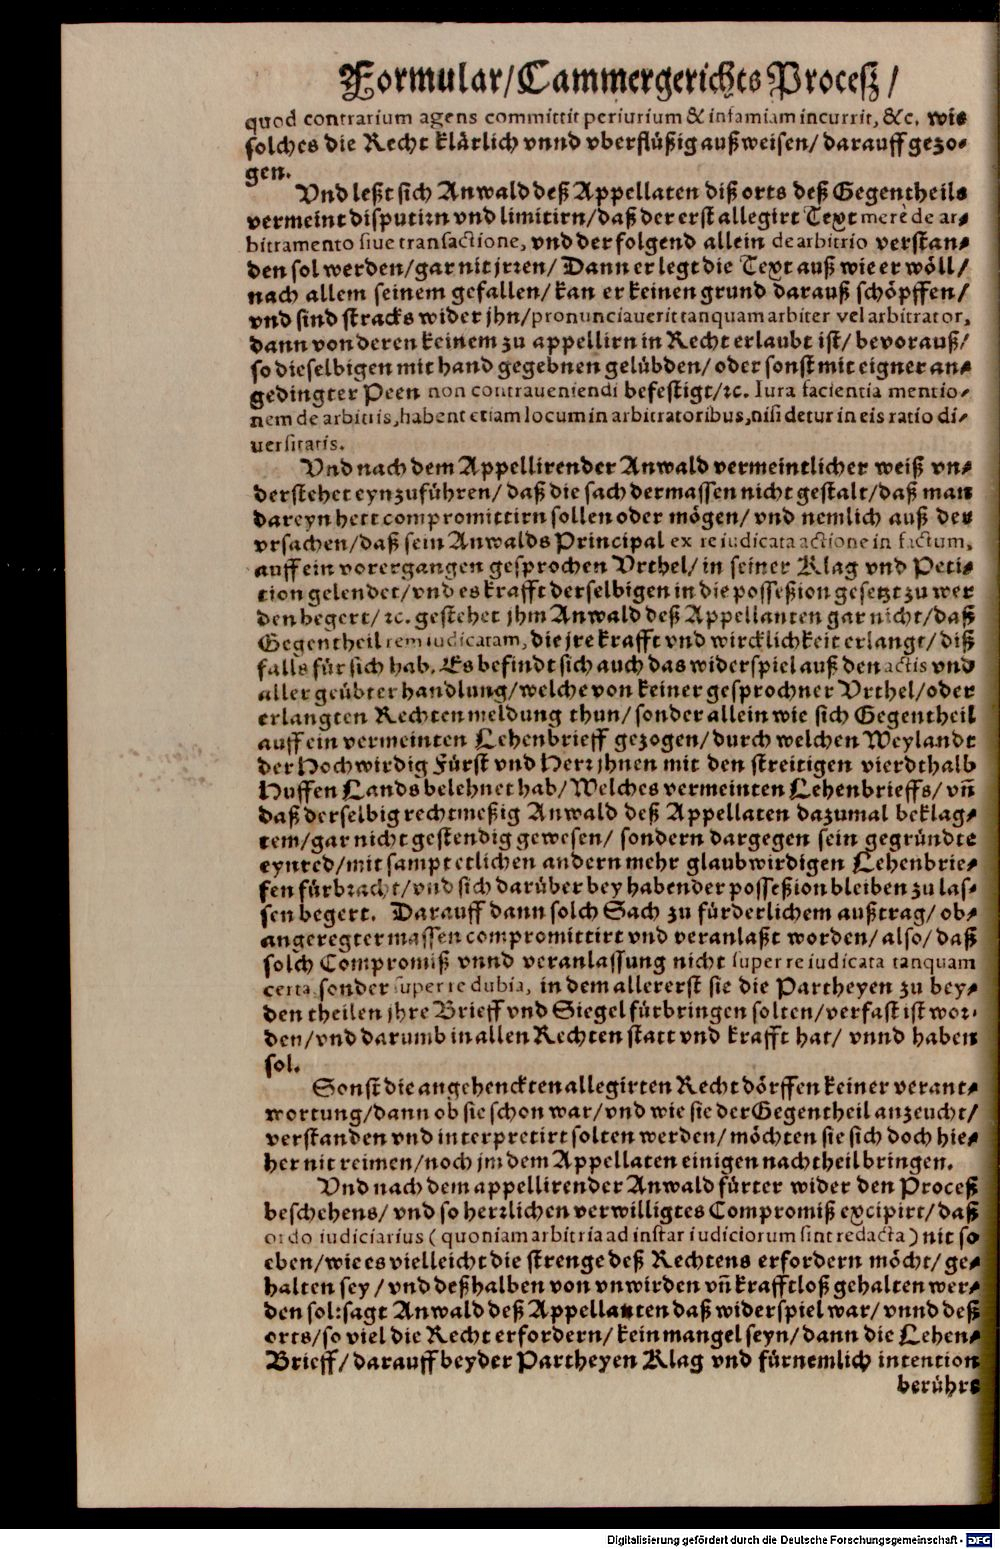 Formular/Cammergerichts Proceß/
quod contrarium agens committit periurium & infamiam incurrit, &c. wie
solches die Recht klärlich vnnd vberflüßig außweisen/ darauff gezo-
gen.
Vnd leßt sich Anwald deß Appellaten diß orts deß Gegentheils
vermeint disputirn vnd limitirn/daß der erst allegirt Text merè de ar-
bitramento siue transactione, vnd der folgend allein de arbitrio verstan-
den sol werden/gar nit jrren/ Dann er legt die Text auß wie er wöll/
nach allem seinem gefallen/ kan er keinen grund darauß schöpffen/
vnd sind stracks wider jhn/pronunciauerit tanquam arbiter vel arbitrator,
dann von deren keinem zu appellirn in Recht erlaubt ist/ bevorauß/
so dieselbigen mit hand gegebnen gelübden/ oder sonst mit eigner an-
gedingter Peen non contraueniendi befestigt/ꝛc. Iura facientia mentio-
nem de arbitris, habent etiam locum in arbitratoribus, nisi detur in eis ratio di-
uersitatis.
Vnd nach dem Appellirender Anwald vermeintlicher weiß vn-
derstehet eynzuführen/ daß die sach dermassen nicht gestalt/daß man
dareyn hett compromittirn sollen oder mögen/ vnd nemlich auß der
vrsachen/daß sein Anwalds Principal ex re iudicata actione in factum,
auff ein vorergangen gesprochen Vrthel/ in seiner Klag vnd Peti-
tion gelendet/vnd es krafft derselbigen in die possession gesetzt zu wer
den begert/ ꝛc. gestehet jhm Anwald deß Appellanten gar nicht/daß
Gegentheil rem iudicatam, die jre krafft vnd wircklichkeit erlangt/ diß
falls für sich hab. Es befindt sich auch das widerspiel auß den actis vnd
aller geübter handlung/welche von keiner gesprochner Vrthel/oder
erlangten Rechten meldung thun/ sonder allein wie sich Gegentheil
auff ein vermeinten Lehenbrieff gezogen/durch welchen Weylandt
der Hochwirdig Fürst vnd Herr jhnen mit den streitigen vierdthalb
Huffen Lands belehnet hab/Welches vermeinten Lehenbrieffs/ vñ
daß derselbig rechtmeßig Anwald deß Appellaten dazumal beklag-
tem/gar nicht gestendig gewesen/ sondern dargegen sein gegründte
eynred/mit sampt etlichen andern mehr glaubwirdigen Lehenbrie-
fen fürbracht/vnd sich darüber bey habender possession bleiben zu las-
sen begert. Darauff dann solch Sach zu fürderlichem außtrag/ ob-
angeregter massen compromittirt vnd veranlaßt worden/ also/ daß
solch Compromiß vnnd veranlassung nicht super re iudicata tanquam
certa, sonder super re dubia, in dem allererst sie die Partheyen zu bey-
den theilen jhre Brieff vnd Siegel fürbringen solten/verfast ist wor-
den/vnd darumb in allen Rechten statt vnd krafft hat/ vnnd haben
sol.
Sonst die angehenckten allegirten Recht dörffen keiner verant-
wortung/dann ob sie schon war/vnd wie sie der Gegentheil anzeucht/
verstanden vnd interpretirt solten werden/ möchten sie sich doch hie-
her nit reimen/noch jm dem Appellaten einigen nachtheil bringen.
Vnd nach dem appellirender Anwald fürter wider den Proceß
beschehens/ vnd so herrlichen verwilligtes Compromiß excipirt/ daß
ordo iudiciarius (quoniam arbitria ad instar iudiciorum sint redacta) nit so
eben/wie es vielleicht die strenge deß Rechtens erfordern möcht/ ge-
halten sey/vnd deßhalben von vnwirden vñ krafftloß gehalten wer-
den sol: sagt Anwald deß Appellanten daß widerspiel war/ vnnd deß
orts/so viel die Recht erfordern/ kein mangel seyn/ dann die Lehen-
Brieff/darauff beyder Partheyen Klag vnd fürnemlich intention
berührt
Digitalisierung gefördert durch die Deutsche Forschungsgemeinschaft - DFG